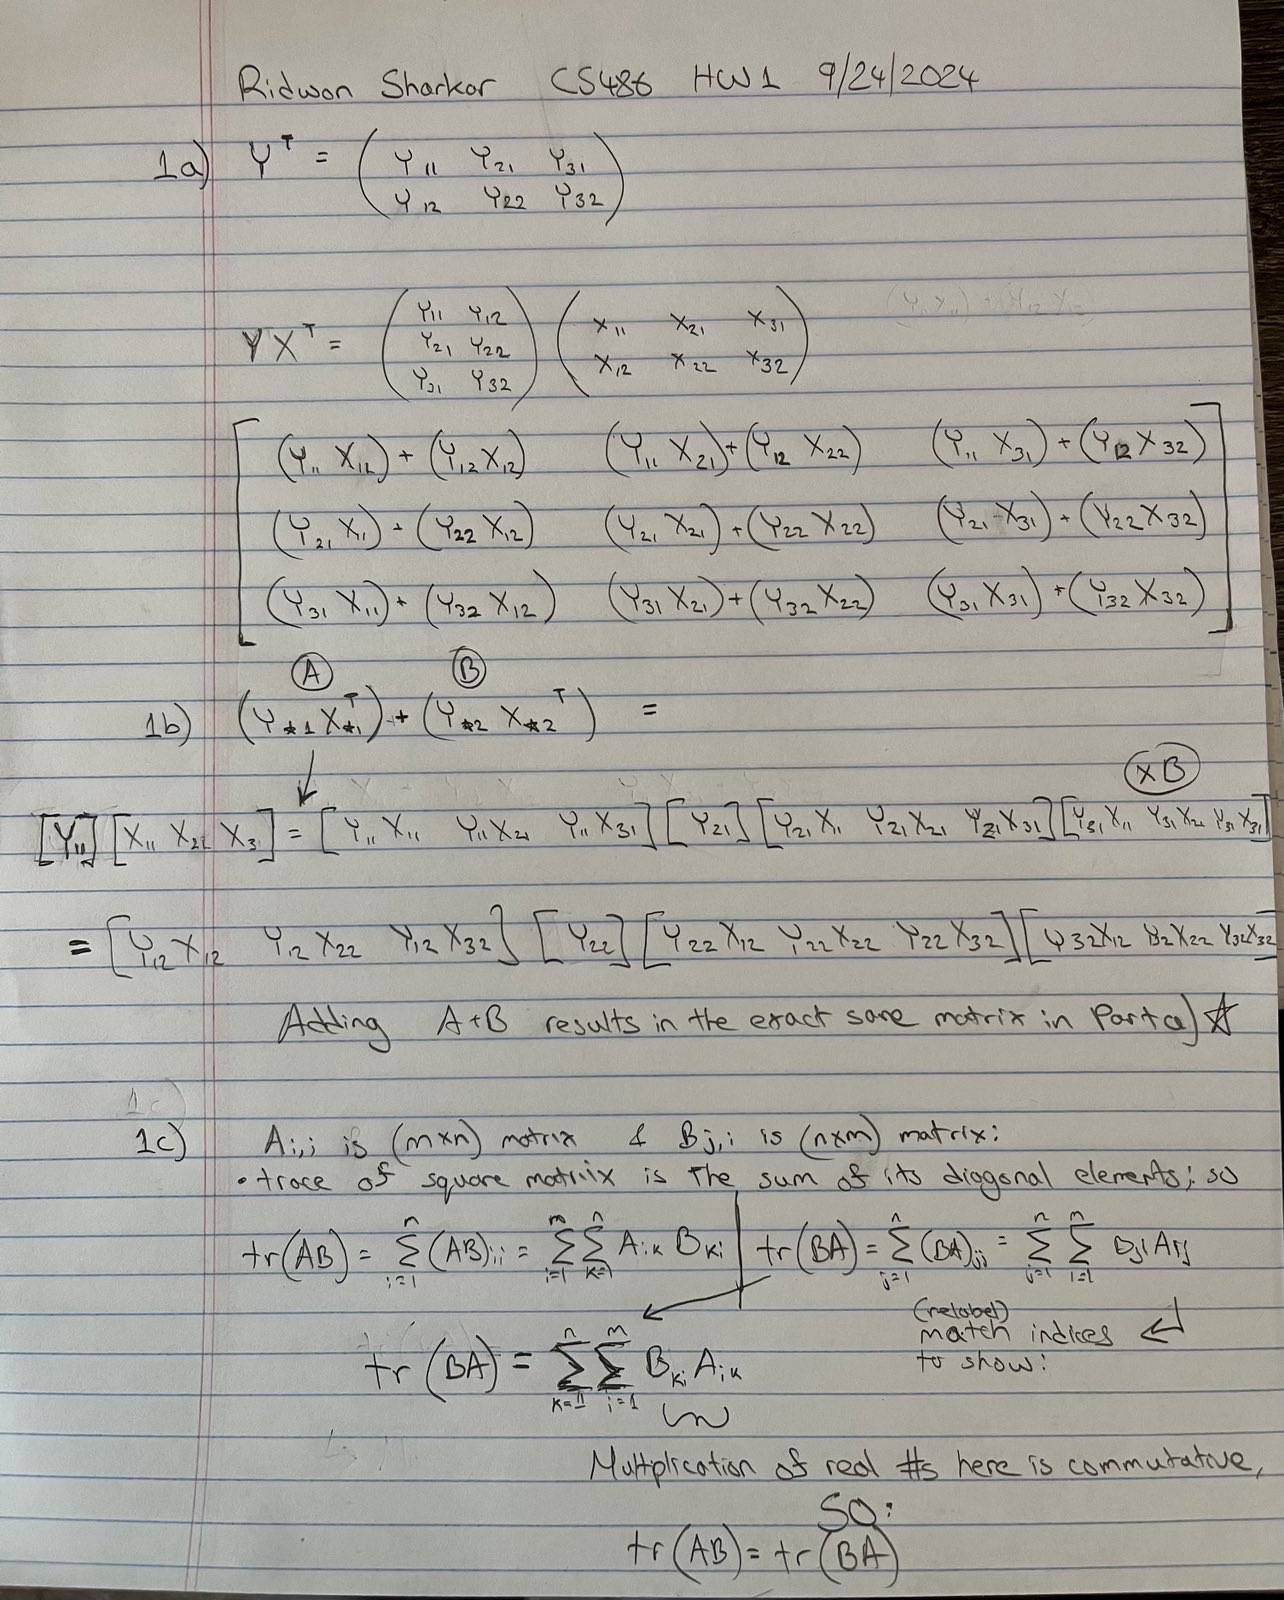 Ridwan Sharkar CS486 HW1 9/24/2024
1a) Y^T = ( Y11 Y21 Y31
Y12 Y22 Y32 )
YX^T = ( Y11 Y12
Y21 Y22
Y31 Y32 ) ( X11 X21 X31
X12 X22 X32 )
[ (Y11 X12) + (Y12 X12) (Y11 X21) + (Y12 X22) (Y11 X31) + (Y12 X32)
(Y21 X11) + (Y22 X12) (Y21 X21) + (Y22 X22) (Y21 X31) + (Y22 X32)
(Y31 X11) + (Y32 X12) (Y31 X21) + (Y32 X22) (Y31 X31) + (Y32 X32) ]
Ⓐ Ⓑ
1b) (Y*1 X*1^T) + (Y*2 X*2^T) =
×B
[Y11] [X11 X21 X31] = [Y11X11 Y11X21 Y11X31] [Y21] [Y21X11 Y21X21 Y21X31] [Y31X11 Y31X21 Y31X31]
= [Y12X12 Y12X22 Y12X32] [Y22] [Y22X12 Y22X22 Y22X32] [Y32X12 Y32X22 Y32X32]
Adding A+B results in the exact same matrix in Part a) ☆
1c) Ai,j is (m×n) matrix & Bj,i is (n×m) matrix:
• trace of square matrix is the sum of its diagonal elements; so
tr(AB) = n∑i=1 (AB)ii = m∑i=1 n∑k=1 Aik Bki | tr(BA) = n∑j=1 (BA)jj = n∑j=1 m∑i=1 Bji Aij
(relabel)
match indices
to show:
tr(BA) = n∑k=1 m∑i=1 Bki Aik
Multplication of real #s here is commutative,
SO:
tr(AB) = tr(BA)